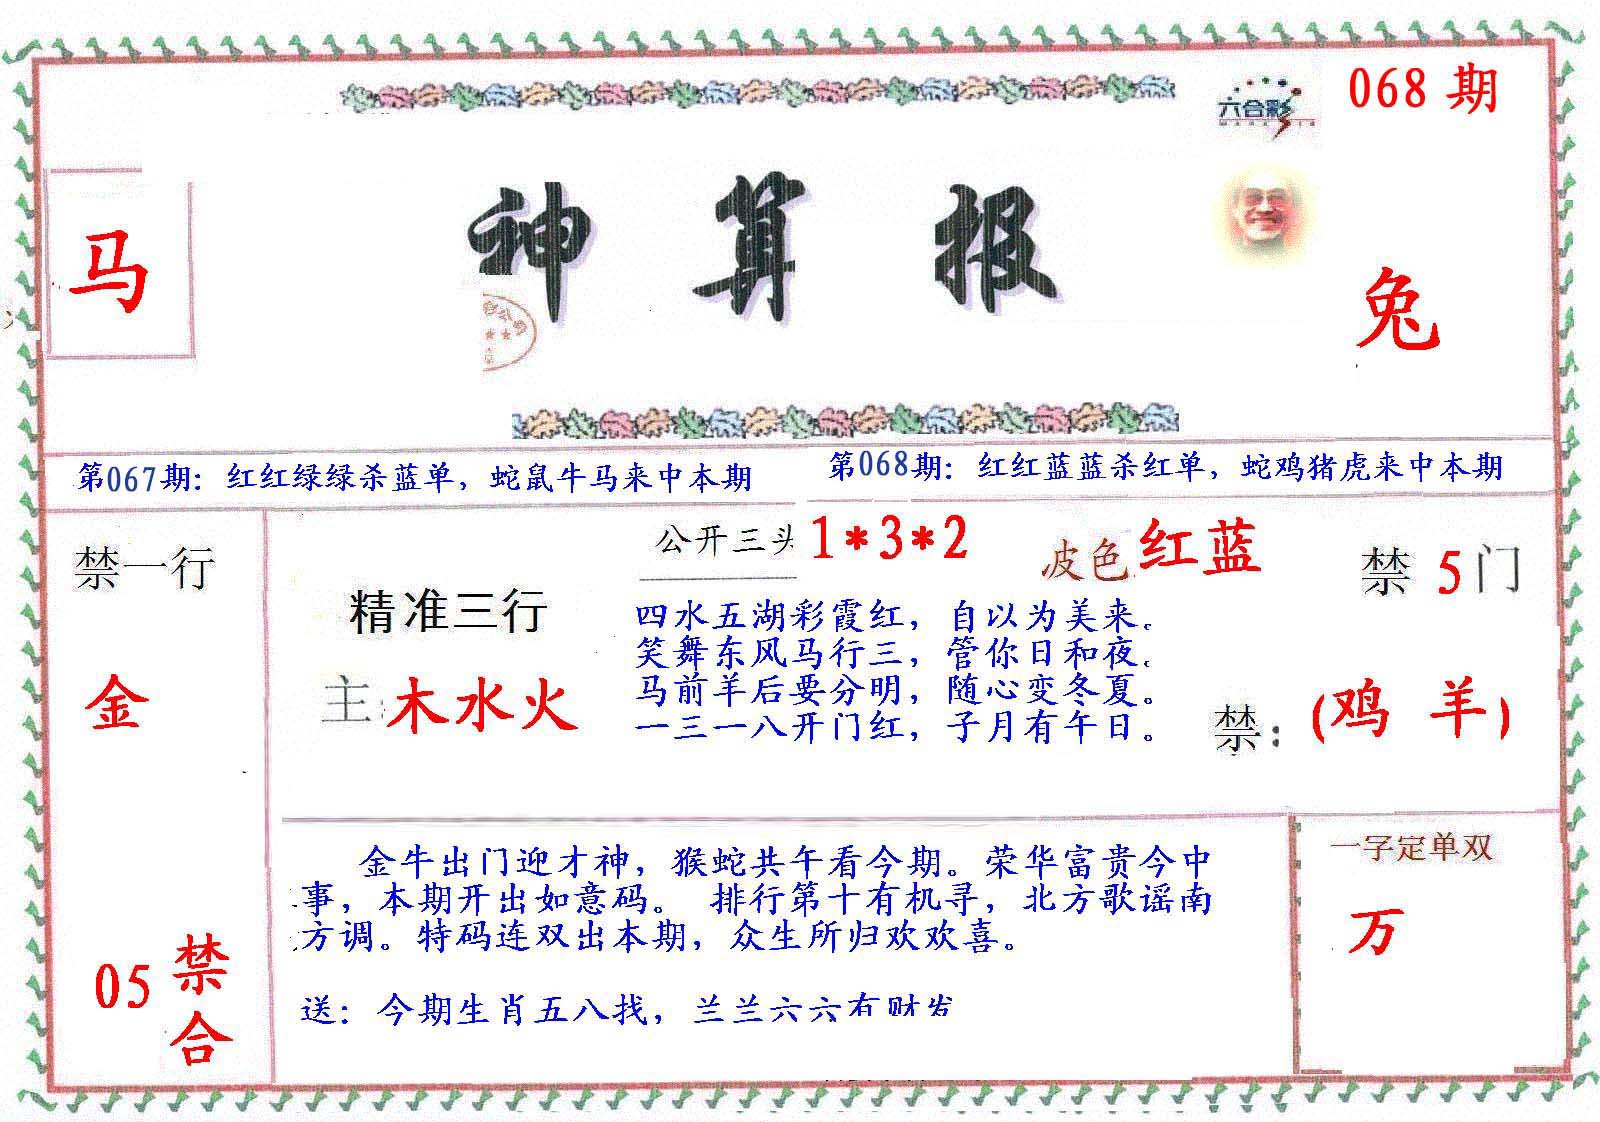 六合彩
068 期
马
神算报
兔
第067期：红红绿绿杀蓝单，蛇鼠牛马来中本期
第068期：红红蓝蓝杀红单，蛇鸡猪虎来中本期
禁一行
金
05 禁合
精准三行
主：木水火
公开三头 1*3*2
皮色 红蓝
禁 5 门
四水五湖彩霞红，自以为美来。
笑舞东风马行三，管你日和夜。
马前羊后要分明，随心变冬夏。
一三一八开门红，子月有午日。
禁：(鸡 羊)
金牛出门迎才神，猴蛇共午看今期。荣华富贵今中
事，本期开出如意码。 排行第十有机寻，北方歌谣南
方调。特码连双出本期，众生所归欢欢喜。
送：今期生肖五八找，兰兰六六有财发
一字定单双
万